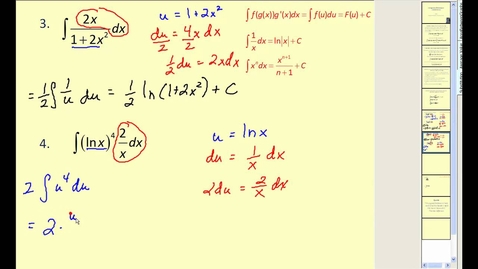 3. ∫ 2x/(1+2x²) dx
u = 1+2x²
du/2 = 4x/2 dx
1/2 du = 2x dx
∫ f(g(x))g'(x)dx = ∫ f(u)du = F(u) + C
∫ 1/x dx = ln|x| + C
∫ xⁿ dx = xⁿ⁺¹/(n+1) + C
= 1/2 ∫ 1/u du = 1/2 ln(1+2x²) + C
4. ∫ (ln x)⁴ 2/x dx
u = ln x
du = 1/x dx
2du = 2/x dx
2 ∫ u⁴ du
= 2 · u